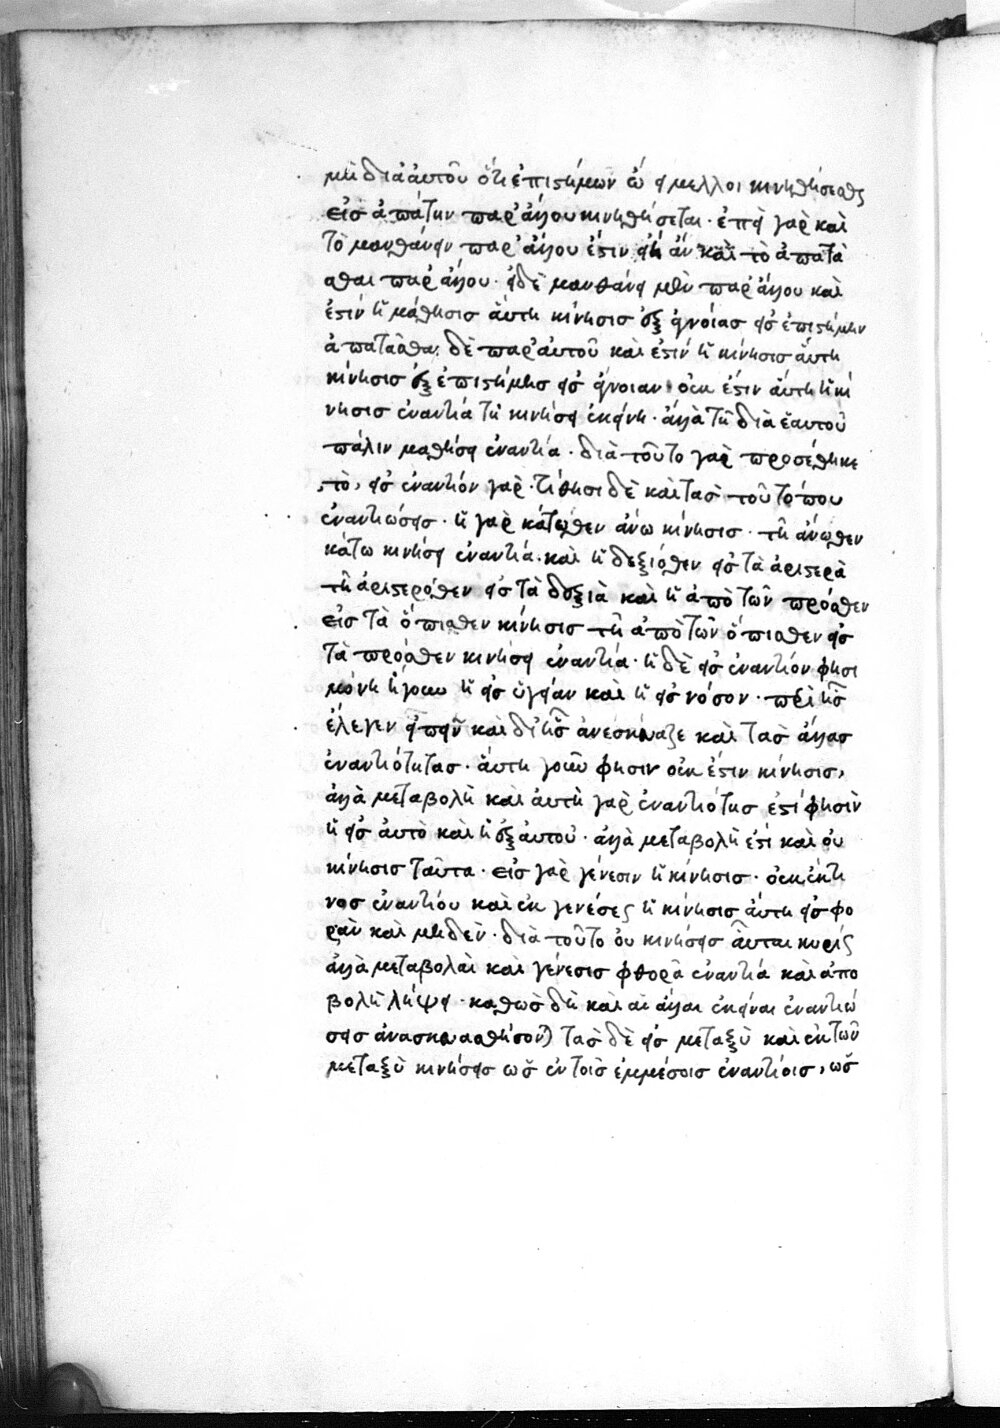 μὴ διὰ αὐτοῦ ὅτι ἐπιστήμων ὢ εἰ μέλλοι κινηθήσεσθαι
εἰς ἀπάτην παρ' ἄλλου κινηθήσεται · ἐπεὶ γὰρ καὶ
τὸ μανθάνειν παρ' ἄλλου ἐστὶν εἴη ἂν καὶ τὸ ἀπατᾶ
σθαι παρ' ἄλλου · εἰ δὲ μανθάνει μὲν παρ' ἄλλου καὶ
ἐστὶν ἡ μάθησις αὕτη κίνησις ἐξ ἀγνοίας εἰς ἐπιστήμην
ἀπατᾶσθαι δὲ παρ' αὐτοῦ καὶ ἐστὶν ἡ κίνησις αὕτη
κίνησις ἐξ ἐπιστήμης εἰς ἄγνοιαν οὐκ ἔστιν αὕτη ἡ κί
νησις ἐναντία τῇ κινήσει ἐκείνῃ · ἀλλὰ τῇ διὰ ἑαυτοῦ
πάλιν μαθήσει ἐναντία · διὰ τοῦτο γὰρ προσέθηκε
τὸ, εἰς ἐναντίον γὰρ · τίθησι δὲ καὶ τὰς τοῦ τόπου
ἐναντιώσεις · ἡ γὰρ κάτωθεν ἄνω κίνησις · τῇ ἄνωθεν
κάτω κινήσει ἐναντία · καὶ ἡ δεξιόθεν εἰς τὰ ἀριστερὰ
τῇ ἀριστερόθεν εἰς τὰ δεξιὰ καὶ ἡ ἀπὸ τῶν πρόσθεν
εἰς τὰ ὄπισθεν κίνησις τῇ ἀπὸ τῶν ὄπισθεν εἰς
τὰ πρόσθεν κινήσει ἐναντία · ἡ δὲ εἰς ἐναντίον φησι
μόνη ἤγουν ἡ εἰς ὑγείαν καὶ ἡ εἰς νόσον · περὶ ἧς
ἔλεγεν εἰπεῖν καὶ δι' ἧς ἀνεσκεύαζε καὶ τὰς ἄλλας
ἐναντιότητας · αὕτη γοῦν φησιν οὐκ ἔστιν κίνησις,
ἀλλὰ μεταβολὴ καὶ αὐτὴ γὰρ ἐναντιότης ἐστί φησὶν
ἡ εἰς αὐτὸ καὶ ἡ ἐξ αὐτοῦ · ἀλλὰ μεταβολή ἐστι καὶ οὐ
κίνησις ταῦτα · εἰς γὰρ γένεσιν ἡ κίνησις · οὐκ ἔκ τι
νος ἐναντίου καὶ ἐκ γενέσεως ἡ κίνησις αὕτη εἰς φθο
ρὰν καὶ μηδὲν · διὰ τοῦτο οὐ κινήσεις αὗται κυρίως
ἀλλὰ μεταβολαὶ καὶ γένεσις φθορᾶ ἐναντία καὶ ἀπο
βολὴ λήψει · καθὼς δὴ καὶ αἱ ἄλλαι ἐκεῖναι ἐναντιώ
σεις ἀνασκευασθήσονται τὰς δὲ εἰς μεταξὺ καὶ ἐκ τῶν
μεταξὺ κινήσεις ὡς ἐν τοῖς ἐμμέσοις ἐναντίοις, ὡς